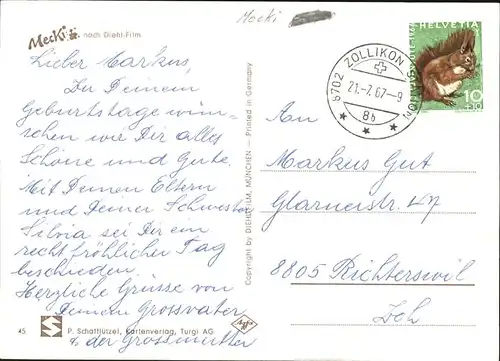 Mecki
Mecki nach Diehl-Film
Lieber Markus,
Zu Deinem
Geburtstage wün-
schen wir Dir alles
Schöne und Gute.
Mit Deinen Eltern
und Deiner Schwester
Silvia sei Dir ein
recht fröhlicher Tag
beschieden.
Herzliche Grüsse von
Deinem Grossvater
& der Grossmutter
45
S P. Schafflützel, Kartenverlag, Turgi AG
Agfa
Copyright by DIEHLFILM, MÜNCHEN — Printed in Germany
8702 ZOLLIKON
21.-7.67-9
8b
HELVETIA
10
+10
An
Markus Gut
Glarnerstr.
8805 Richterswil
Zch